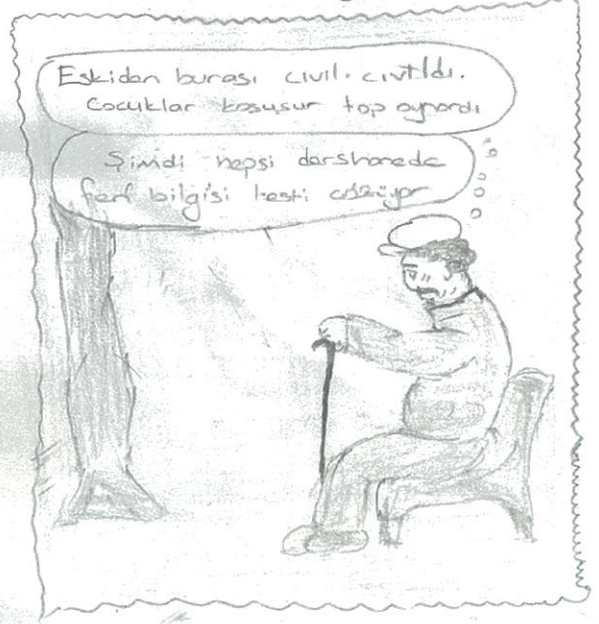 Eskiden burası cıvıl. cıvıldı.
Çocuklar koşuşur top oynardı
Şimdi hepsi dershanede
fen bilgisi testi çözüyor